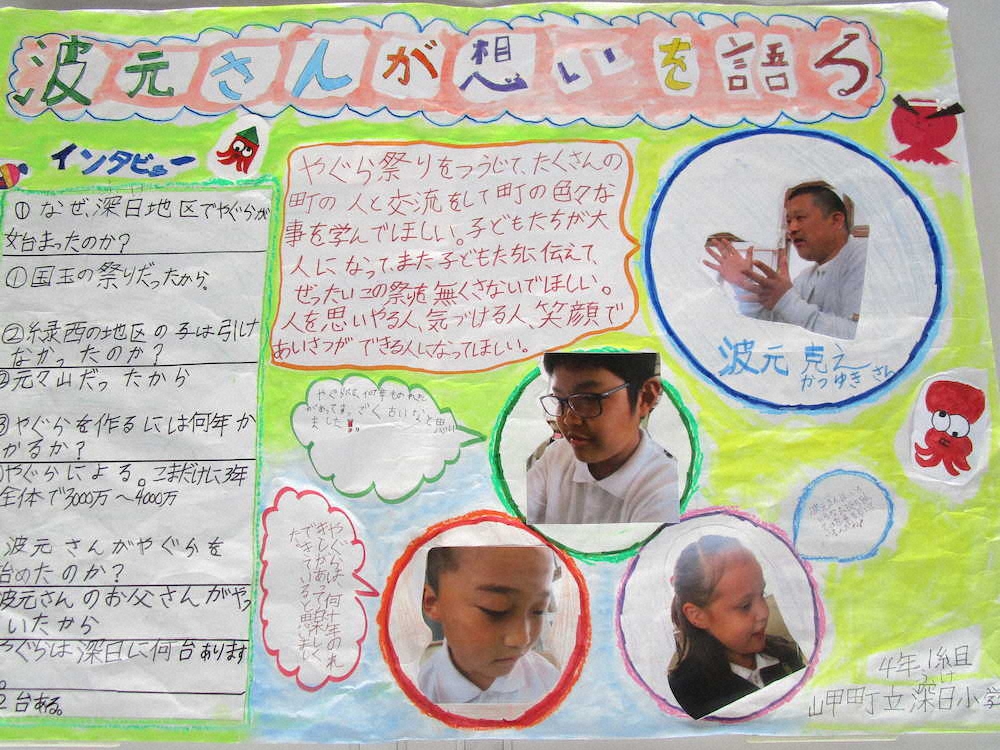 波元さんが想いを語る
インタビュー
① なぜ、深日地区でやぐらが
始まったのか?
①国玉の祭りだったから。
②緑西の地区の子は引け
なかったのか?
②元々山だったから
③やぐらを作るには何年か
かるか?
やぐらによる。こまだけに3年
全体で3000万〜4000万
波元さんがやぐらを
始めたのか?
波元さんのお父さんがやっ
いたから
やぐらは深日に何台あります
2台ある。
やぐら祭りをつうじて、たくさんの
町の人と交流をして町の色々な
事を学んでほしい。子どもたちが大
人になって、また子どもたちに伝えて、
ぜったいこの祭りを無くさないでほしい。
人を思いやる人、気づける人、笑顔で
あいさつができる人になってほしい。
波元 克之
かつゆき さん
やぐらは、何十年の
できていると思いまし
4年1組
町立深日小学